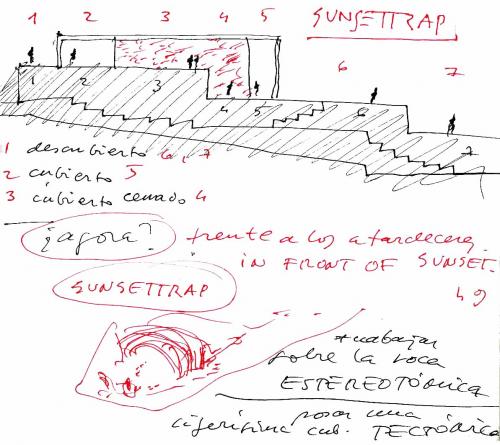 1 2 3 4 5 SUNSETTRAP
6 7
1 2 3 4 5 6 7
1 descubierto 6, 7
2 cubierto 5
3 cubierto cerrado 4
¿agora? frente a los atardeceres
IN FRONT OF SUNSET.
SUNSETTRAP
trabajar
sobre la roca
ESTEREOTÓMICA
posar una
ligerísima cab. TECTÓNICA